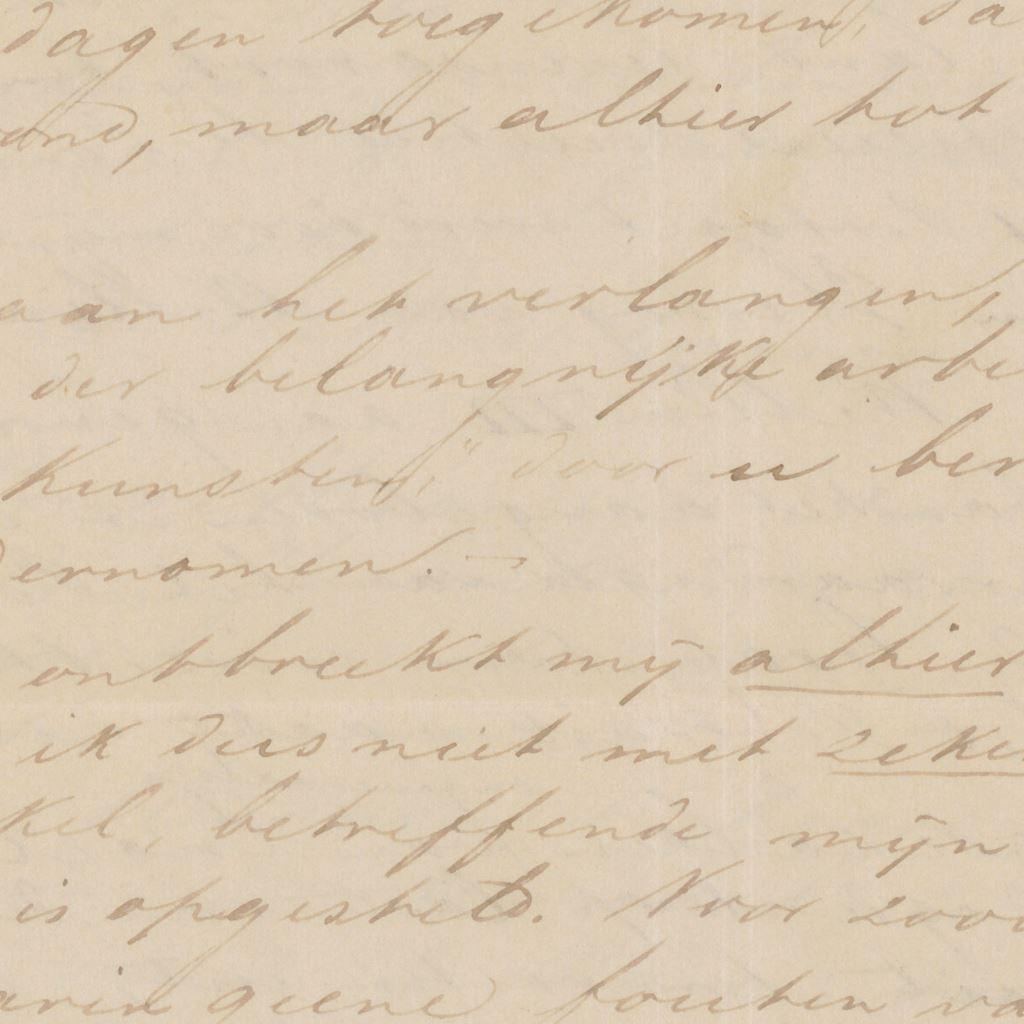 dagen toegekomen, da
and, maar alhier tot
aan het verlangen,
der belangrijke arbe
kunsten," door u ber
dernomen. —
ontbreekt mij alhier
ik dus niet met zeke
kel, betreffende mijn
is opgesteld. Voor zoov
arin geene fouten va